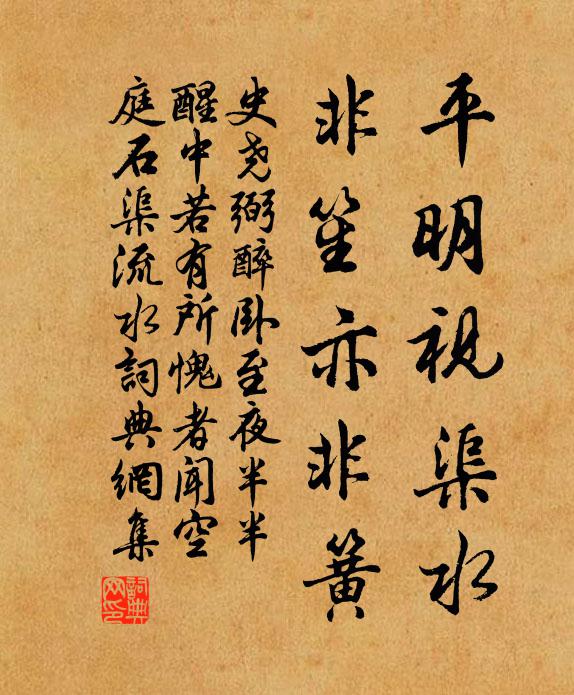 平明視渠水
非笙亦非簧
史尧弼醉卧至夜半半
醒中若有所愧者闻空
庭石渠流水詞典網集
詞典网印